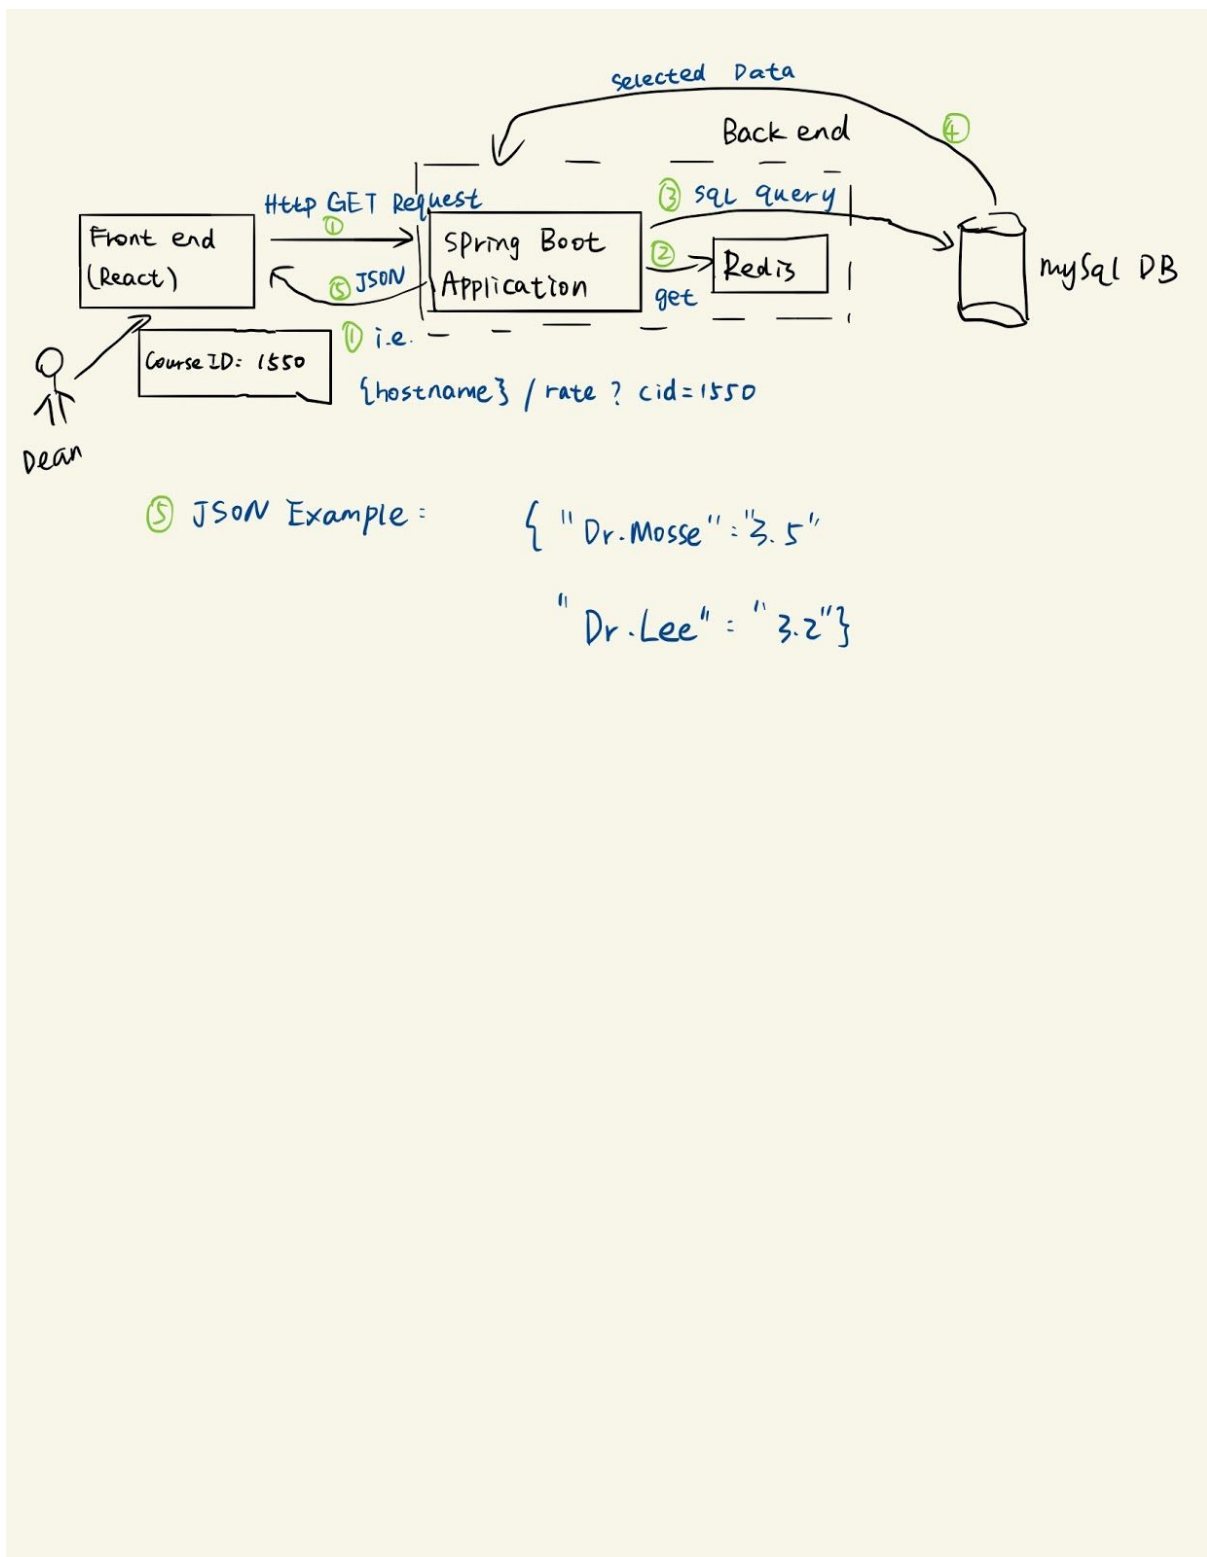 Selected Data
Back end
④
Http GET Request
①
③ sql query
Front end
(React)
Spring Boot
Application
②
get
Redis
mySql DB
⑤ JSON
① i.e.
Course ID: 1550
{hostname} / rate ? cid=1550
Dean
⑤ JSON Example :
{ "Dr.Mosse" : "3.5"
"Dr.Lee" : "3.2"}